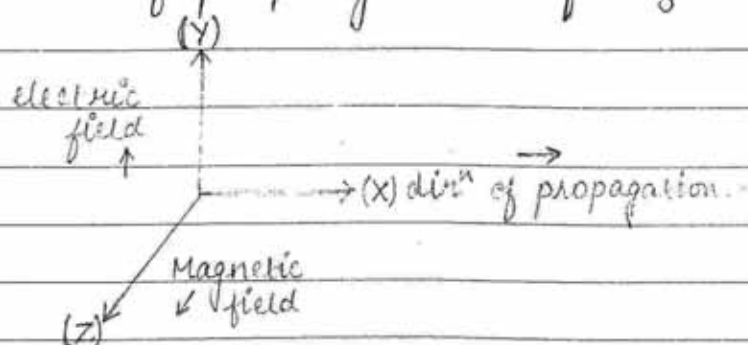 (Y)
electric
field
(X) dirⁿ of propagation.
Magnetic
field
(Z)